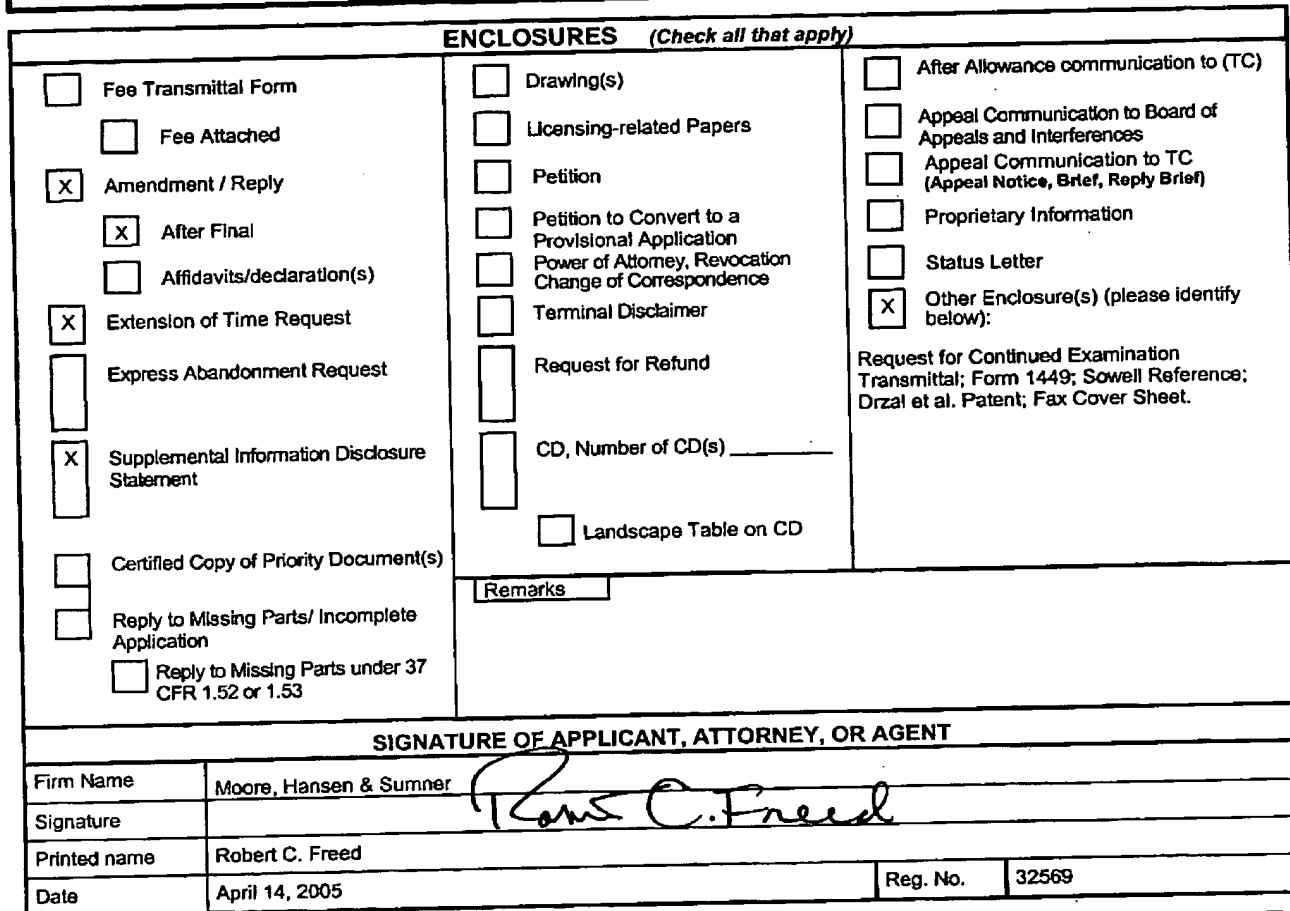 ENCLOSURES (Check all that apply)
Fee Transmittal Form
Fee Attached
X Amendment / Reply
X After Final
Affidavits/declaration(s)
X Extension of Time Request
Express Abandonment Request
X Supplemental Information Disclosure
Statement
Certified Copy of Priority Document(s)
Reply to Missing Parts/ Incomplete
Application
Reply to Missing Parts under 37
CFR 1.52 or 1.53
Drawing(s)
Licensing-related Papers
Petition
Petition to Convert to a
Provisional Application
Power of Attorney, Revocation
Change of Correspondence
Terminal Disclaimer
Request for Refund
CD, Number of CD(s) __________
Landscape Table on CD
After Allowance communication to (TC)
Appeal Communication to Board of
Appeals and Interferences
Appeal Communication to TC
(Appeal Notice, Brief, Reply Brief)
Proprietary Information
Status Letter
X Other Enclosure(s) (please identify
below):
Request for Continued Examination
Transmittal; Form 1449; Sowell Reference;
Drzal et al. Patent; Fax Cover Sheet.
Remarks
SIGNATURE OF APPLICANT, ATTORNEY, OR AGENT
Firm Name Moore, Hansen & Sumner
Signature Robert C. Freed
Printed name Robert C. Freed
Date April 14, 2005 Reg. No. 32569